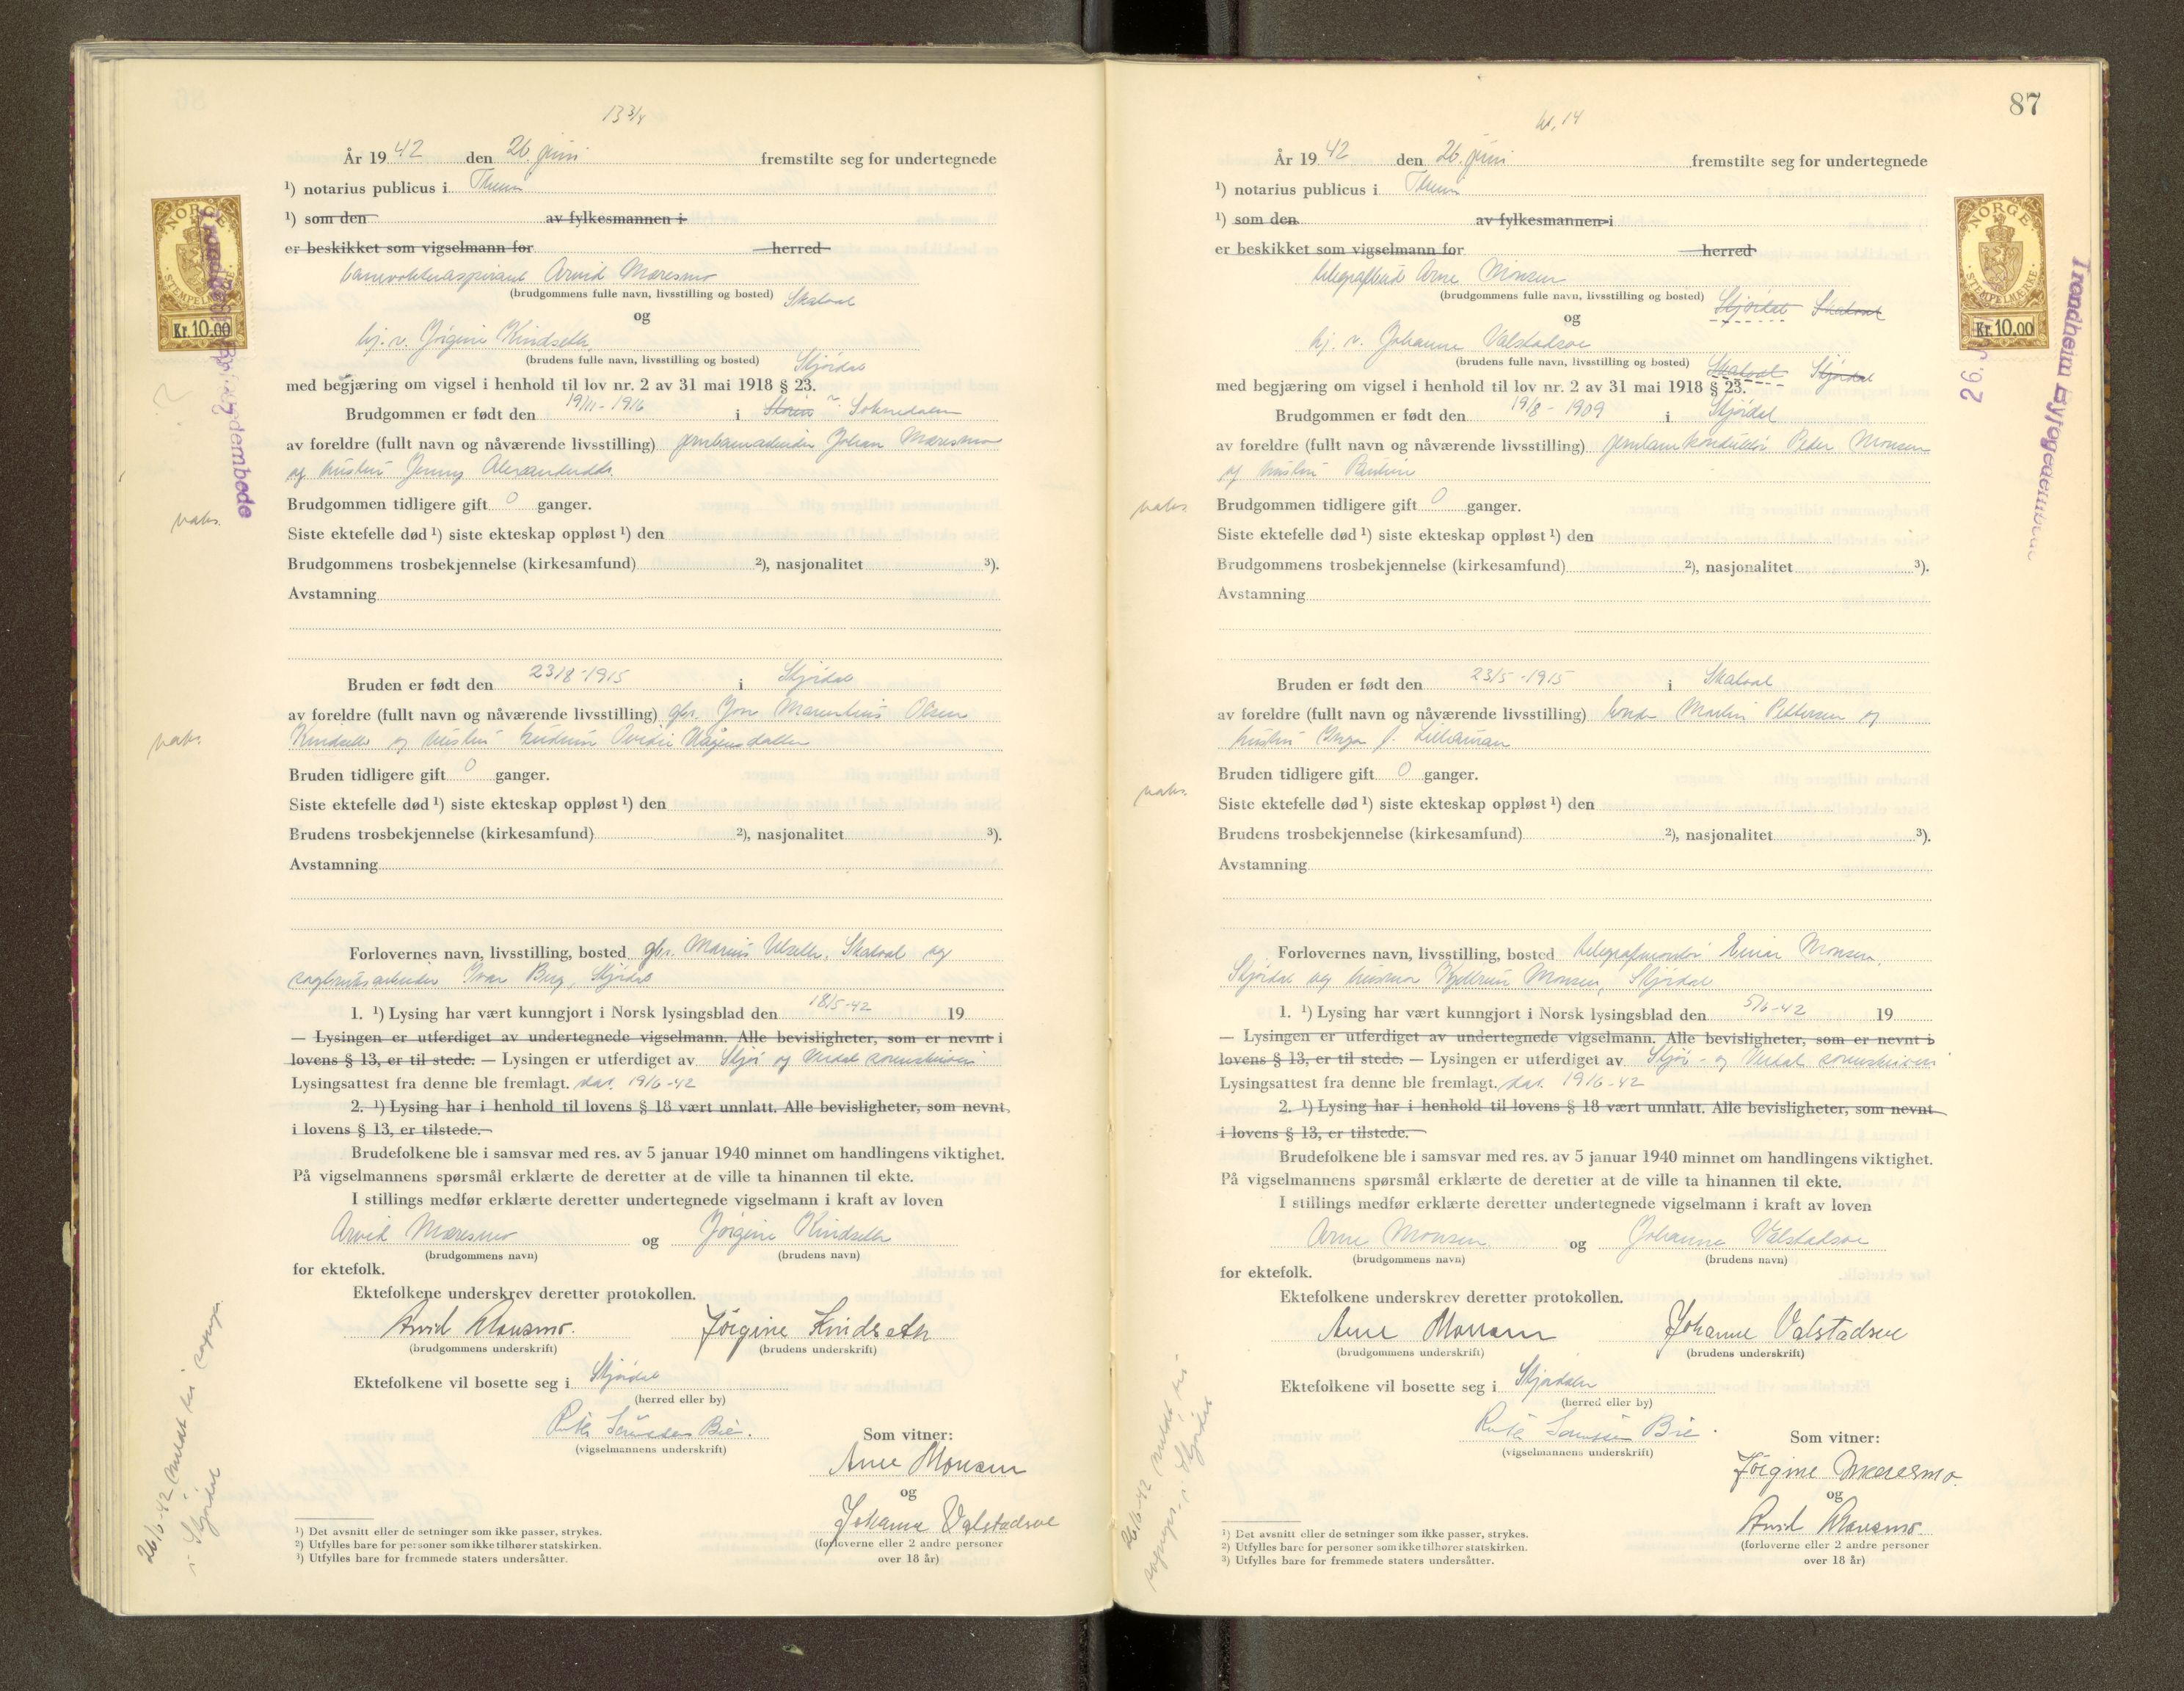 13 3/4
År 19 42 den 26. juni fremstilte seg for undertegnede
¹) notarius publicus i Thun
¹) som den av fylkesmannen i
er beskikket som vigselmann for herred
banevokteraspirant Arvid Mæresmo
(brudgommens fulle navn, livsstilling og bosted) Skatval
og
hj. v. Jørgine Kindseth
(brudens fulle navn, livsstilling og bosted) Stjørdal
med begjæring om vigsel i henhold til lov nr. 2 av 31 mai 1918 § 23.
Brudgommen er født den 19/11-1916 i Støren v. Soknedalen
av foreldre (fullt navn og nåværende livsstilling) jernbanearbeider Johan Mæresmo
og hustru Jenny Alexandersdtr.
Brudgommen tidligere gift 0 ganger.
vaks.
Siste ektefelle død ¹) siste ekteskap oppløst ¹) den
Brudgommens trosbekjennelse (kirkesamfund) ²), nasjonalitet ³).
Avstamning
Bruden er født den 23/8-1915 i Stjørdal
av foreldre (fullt navn og nåværende livsstilling) gbr. Jon Marentius Olsen
Kindseth og hustru Gudrun Ovedie Hågensdatter
vaks.
Bruden tidligere gift 0 ganger.
Siste ektefelle død ¹) siste ekteskap oppløst ¹) den
Brudens trosbekjennelse (kirkesamfund) ²), nasjonalitet ³).
Avstamning
Forlovernes navn, livsstilling, bosted gbr. Marius Velseth, Skatval og
sagbruksarbeider Ivar Berg, Stjørdal
1. ¹) Lysing har vært kunngjort i Norsk lysingsblad den 18/5-42 19
— Lysingen er utferdiget av undertegnede vigselmann. Alle bevisligheter, som er nevnt i
lovens § 13, er til stede. — Lysingen er utferdiget av Stjør og Verdal sorenskriveri
Lysingsattest fra denne ble fremlagt. dat. 19/6-42
2. ¹) Lysing har i henhold til lovens § 18 vært unnlatt. Alle bevisligheter, som nevnt
i lovens § 13, er tilstede.
Brudefolkene ble i samsvar med res. av 5 januar 1940 minnet om handlingens viktighet.
På vigselmannens spørsmål erklærte de deretter at de ville ta hinannen til ekte.
I stillings medfør erklærte deretter undertegnede vigselmann i kraft av loven
Arvid Mæresmo og Jørgine Kindseth
(brudgommens navn) (brudens navn)
for ektefolk.
Ektefolkene underskrev deretter protokollen.
Arvid Mæresmo. Jørgine Kindseth
(brudgommens underskrift) (brudens underskrift)
Ektefolkene vil bosette seg i Stjørdal
(herred eller by)
Bie.
(vigselmannens underskrift)
Som vitner:
Arne Monsen
og
Johanne Valstadsve
(forloverne eller 2 andre personer
over 18 år)
¹) Det avsnitt eller de setninger som ikke passer, strykes.
²) Utfylles bare for personer som ikke tilhører statskirken.
³) Utfylles bare for fremmede staters undersåtter.
26/6-42 meldt til sognepr.
i Stjørdal
NORGE
STEMPELMERKE
Kr. 10.00
87
kl. 14
År 19 42 den 26. juni fremstilte seg for undertegnede
¹) notarius publicus i Thun
¹) som den av fylkesmannen i
er beskikket som vigselmann for herred
telegrafbud Arne Monsen
(brudgommens fulle navn, livsstilling og bosted) Stjørdal Skatval
og
hj. v. Johanne Valstadsve
(brudens fulle navn, livsstilling og bosted) Skatval Stjørdal
med begjæring om vigsel i henhold til lov nr. 2 av 31 mai 1918 § 23.
Brudgommen er født den 19/8-1909 i Stjørdal
av foreldre (fullt navn og nåværende livsstilling) jernbanekonduktør Peder Monsen
og hustru Pauline
vaks.
Brudgommen tidligere gift 0 ganger.
Siste ektefelle død ¹) siste ekteskap oppløst ¹) den
Brudgommens trosbekjennelse (kirkesamfund) ²), nasjonalitet ³).
Avstamning
Bruden er født den 23/5-1915 i Skatval
av foreldre (fullt navn og nåværende livsstilling) bonde Martin Pettersen og
hustru Inga f. Lillemoen
Bruden tidligere gift 0 ganger.
vaks.
Siste ektefelle død ¹) siste ekteskap oppløst ¹) den
Brudens trosbekjennelse (kirkesamfund) ²), nasjonalitet ³).
Avstamning
Forlovernes navn, livsstilling, bosted telegrafmontør Einar Monsen,
Stjørdal og husmor Monsen, Stjørdal
1. ¹) Lysing har vært kunngjort i Norsk lysingsblad den 5/6-42 19
— Lysingen er utferdiget av undertegnede vigselmann. Alle bevisligheter, som er nevnt i
lovens § 13, er til stede. — Lysingen er utferdiget av Stjør- og Verdal sorenskriveri
Lysingsattest fra denne ble fremlagt. dat. 19/6-42
2. ¹) Lysing har i henhold til lovens § 18 vært unnlatt. Alle bevisligheter, som nevnt
i lovens § 13, er tilstede.
Brudefolkene ble i samsvar med res. av 5 januar 1940 minnet om handlingens viktighet.
På vigselmannens spørsmål erklærte de deretter at de ville ta hinannen til ekte.
I stillings medfør erklærte deretter undertegnede vigselmann i kraft av loven
Arne Monsen og Johanne Valstadsve
(brudgommens navn) (brudens navn)
for ektefolk.
Ektefolkene underskrev deretter protokollen.
Arne Monsen Johanne Valstadsve
(brudgommens underskrift) (brudens underskrift)
Ektefolkene vil bosette seg i Stjørdalen
(herred eller by)
Bie.
(vigselmannens underskrift)
Som vitner:
Jørgine Mæresmo.
og
Arvid Mæresmo.
(forloverne eller 2 andre personer
over 18 år)
¹) Det avsnitt eller de setninger som ikke passer, strykes.
²) Utfylles bare for personer som ikke tilhører statskirken.
³) Utfylles bare for fremmede staters undersåtter.
26/6-42 meldt til
sognepr. i Stjørdal
NORGE
STEMPELMERKE
Kr. 10.00
Trondheim Byfogdembede
26.